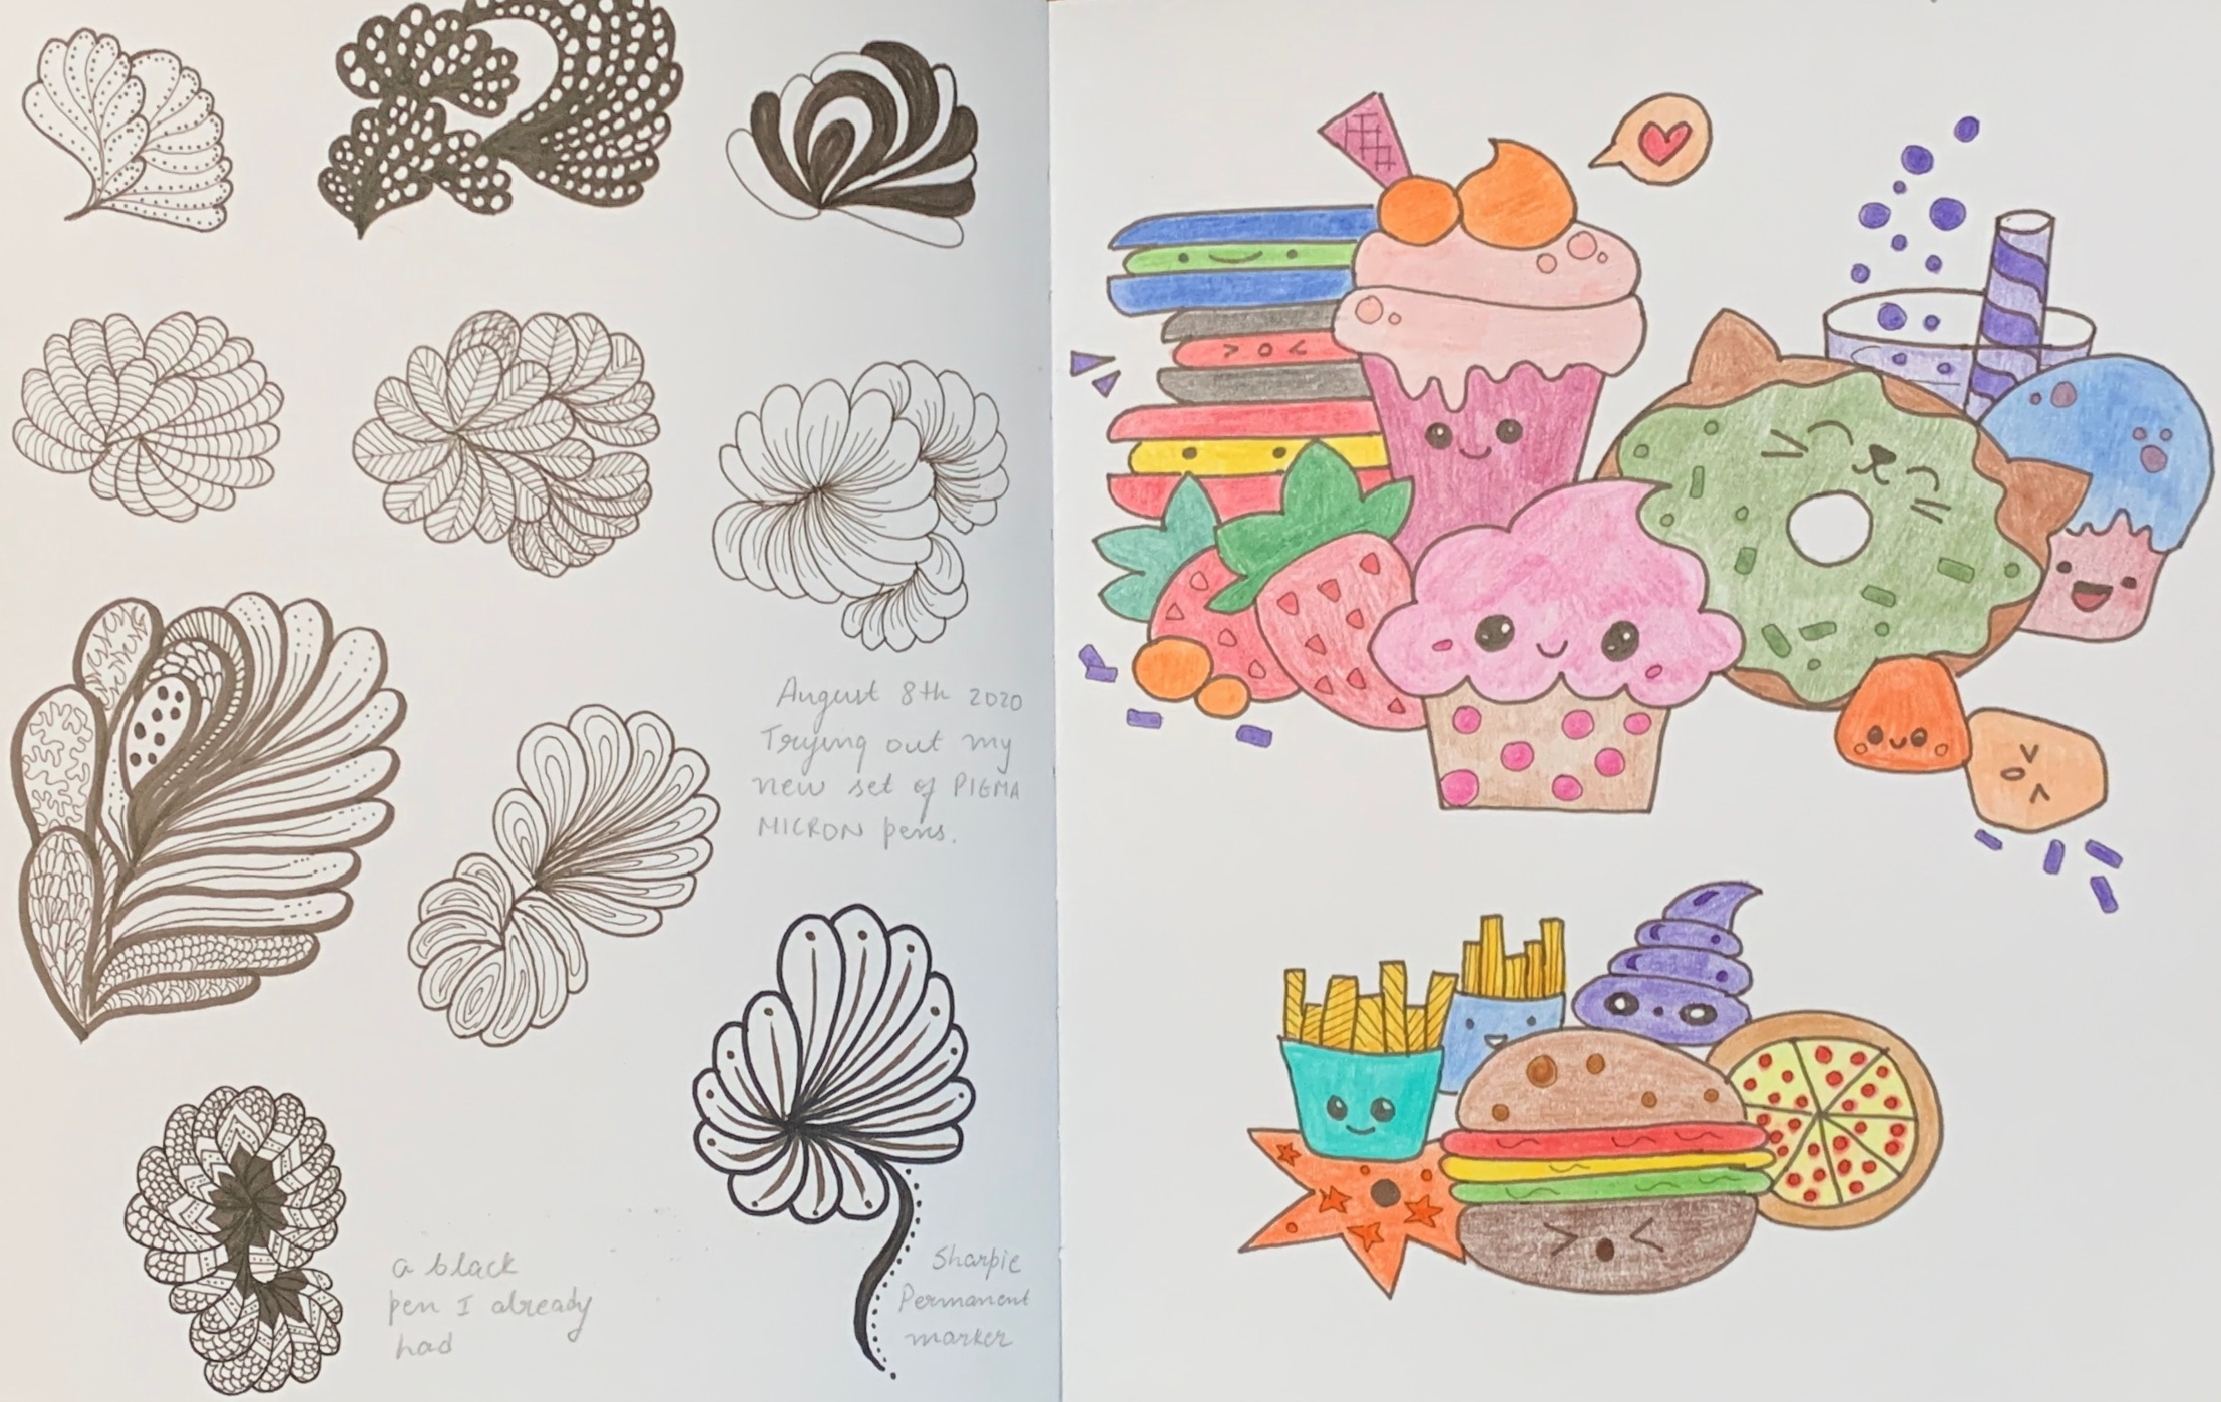 August 8th 2020
Trying out my
new set of PIGMA
MICRON pens.
a black
pen I already
had
Sharpie
Permanent
marker